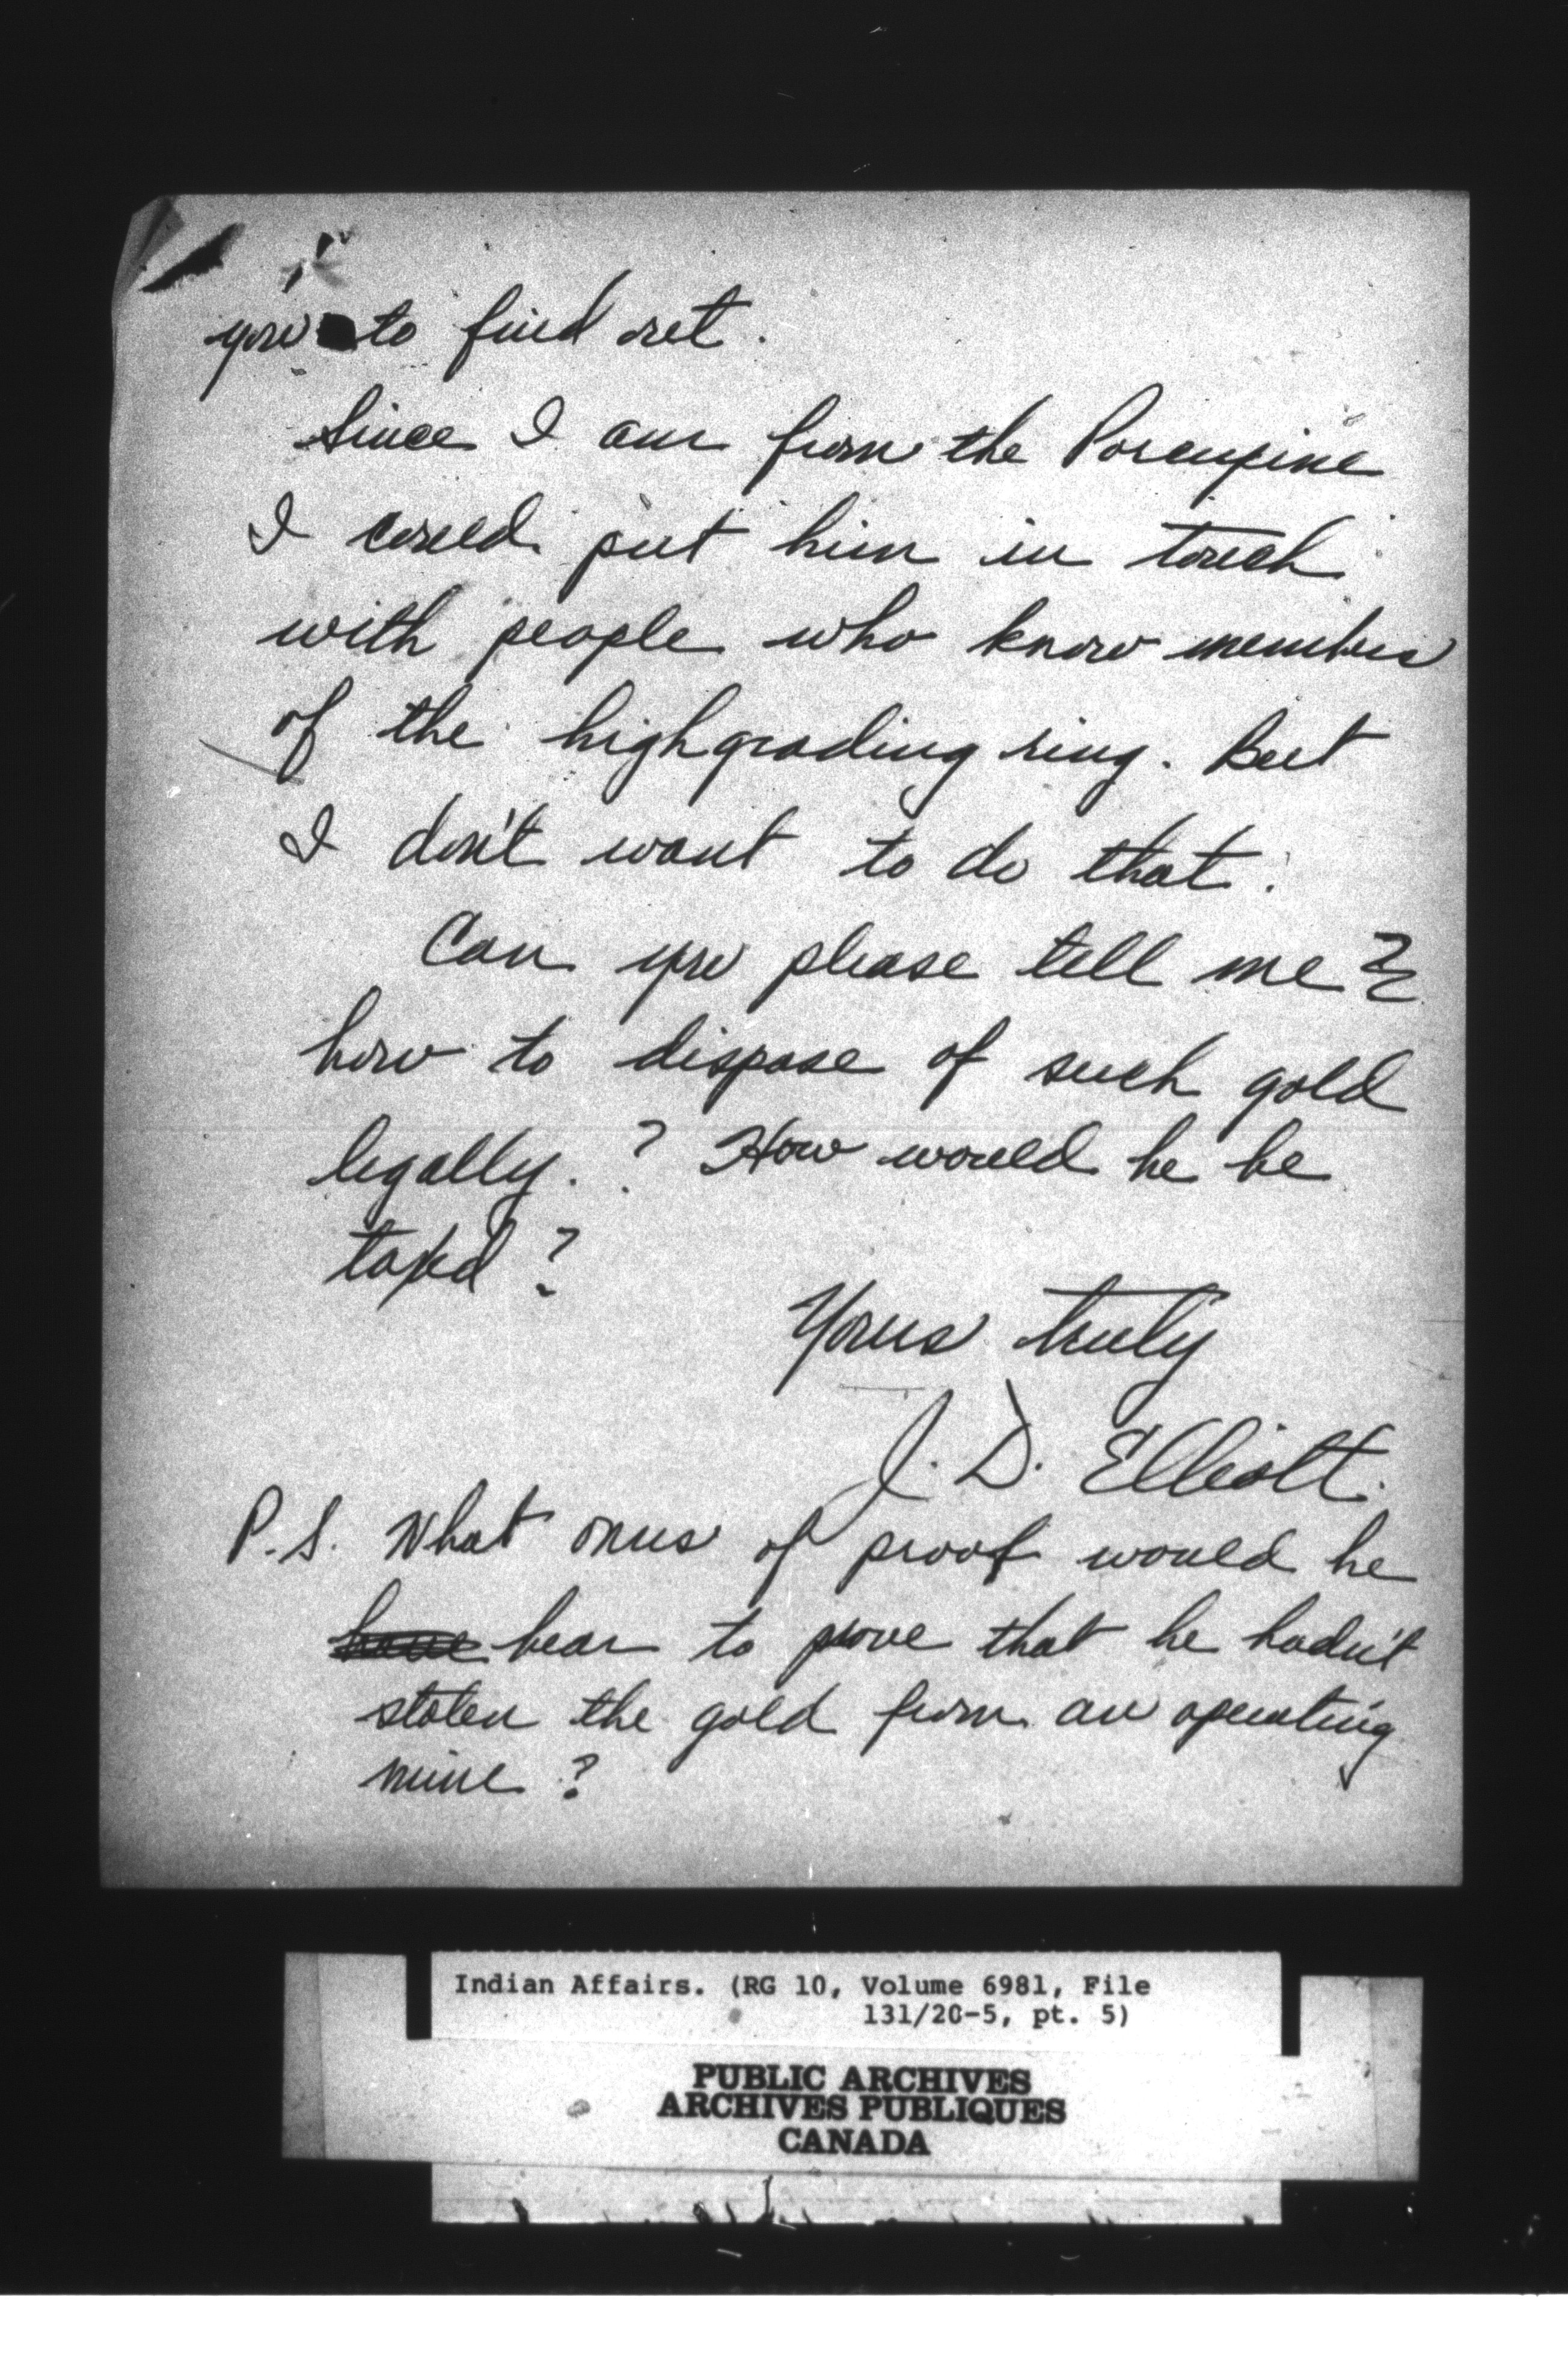 you to find out.
Since I am from the Porcupine
I could put him in touch
with people who know members
of the highgrading ring. But
I don't want to do that.
Can you please tell me
how to dispose of such gold
legally. ? How would he be
taxed ?
Yours truly
J. D. Elliott.
P.S. What onus of proof would he
have bear to prove that he hadn't
stolen the gold from an operating
mine ?
Indian Affairs. (RG 10, Volume 6981, File
131/20-5, pt. 5)
PUBLIC ARCHIVES
ARCHIVES PUBLIQUES
CANADA